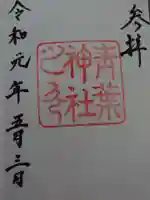 参拝
青葉
神社
令和元年五月三日